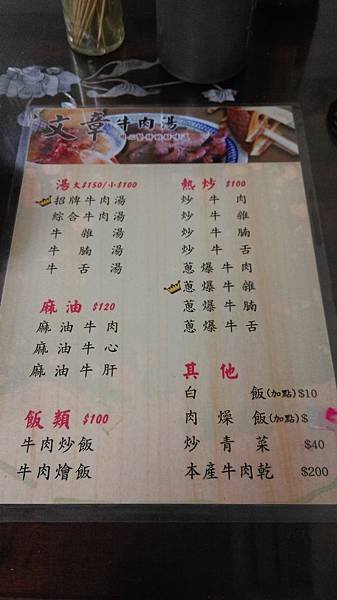 文章牛肉湯
湯 大$150/小$100
招牌牛肉湯
綜合牛肉湯
牛雜湯
牛腩湯
牛舌湯
麻油 $120
麻油牛肉
麻油牛心
麻油牛肝
飯類 $100
牛肉炒飯
牛肉燴飯
熱炒 $100
炒牛肉
炒牛雜
炒牛腩
炒牛舌
蔥爆牛肉
蔥爆牛雜
蔥爆牛腩
蔥爆牛舌
其他
白飯(加點)$10
肉燥飯(加點)$
炒青菜 $40
本產牛肉乾 $200